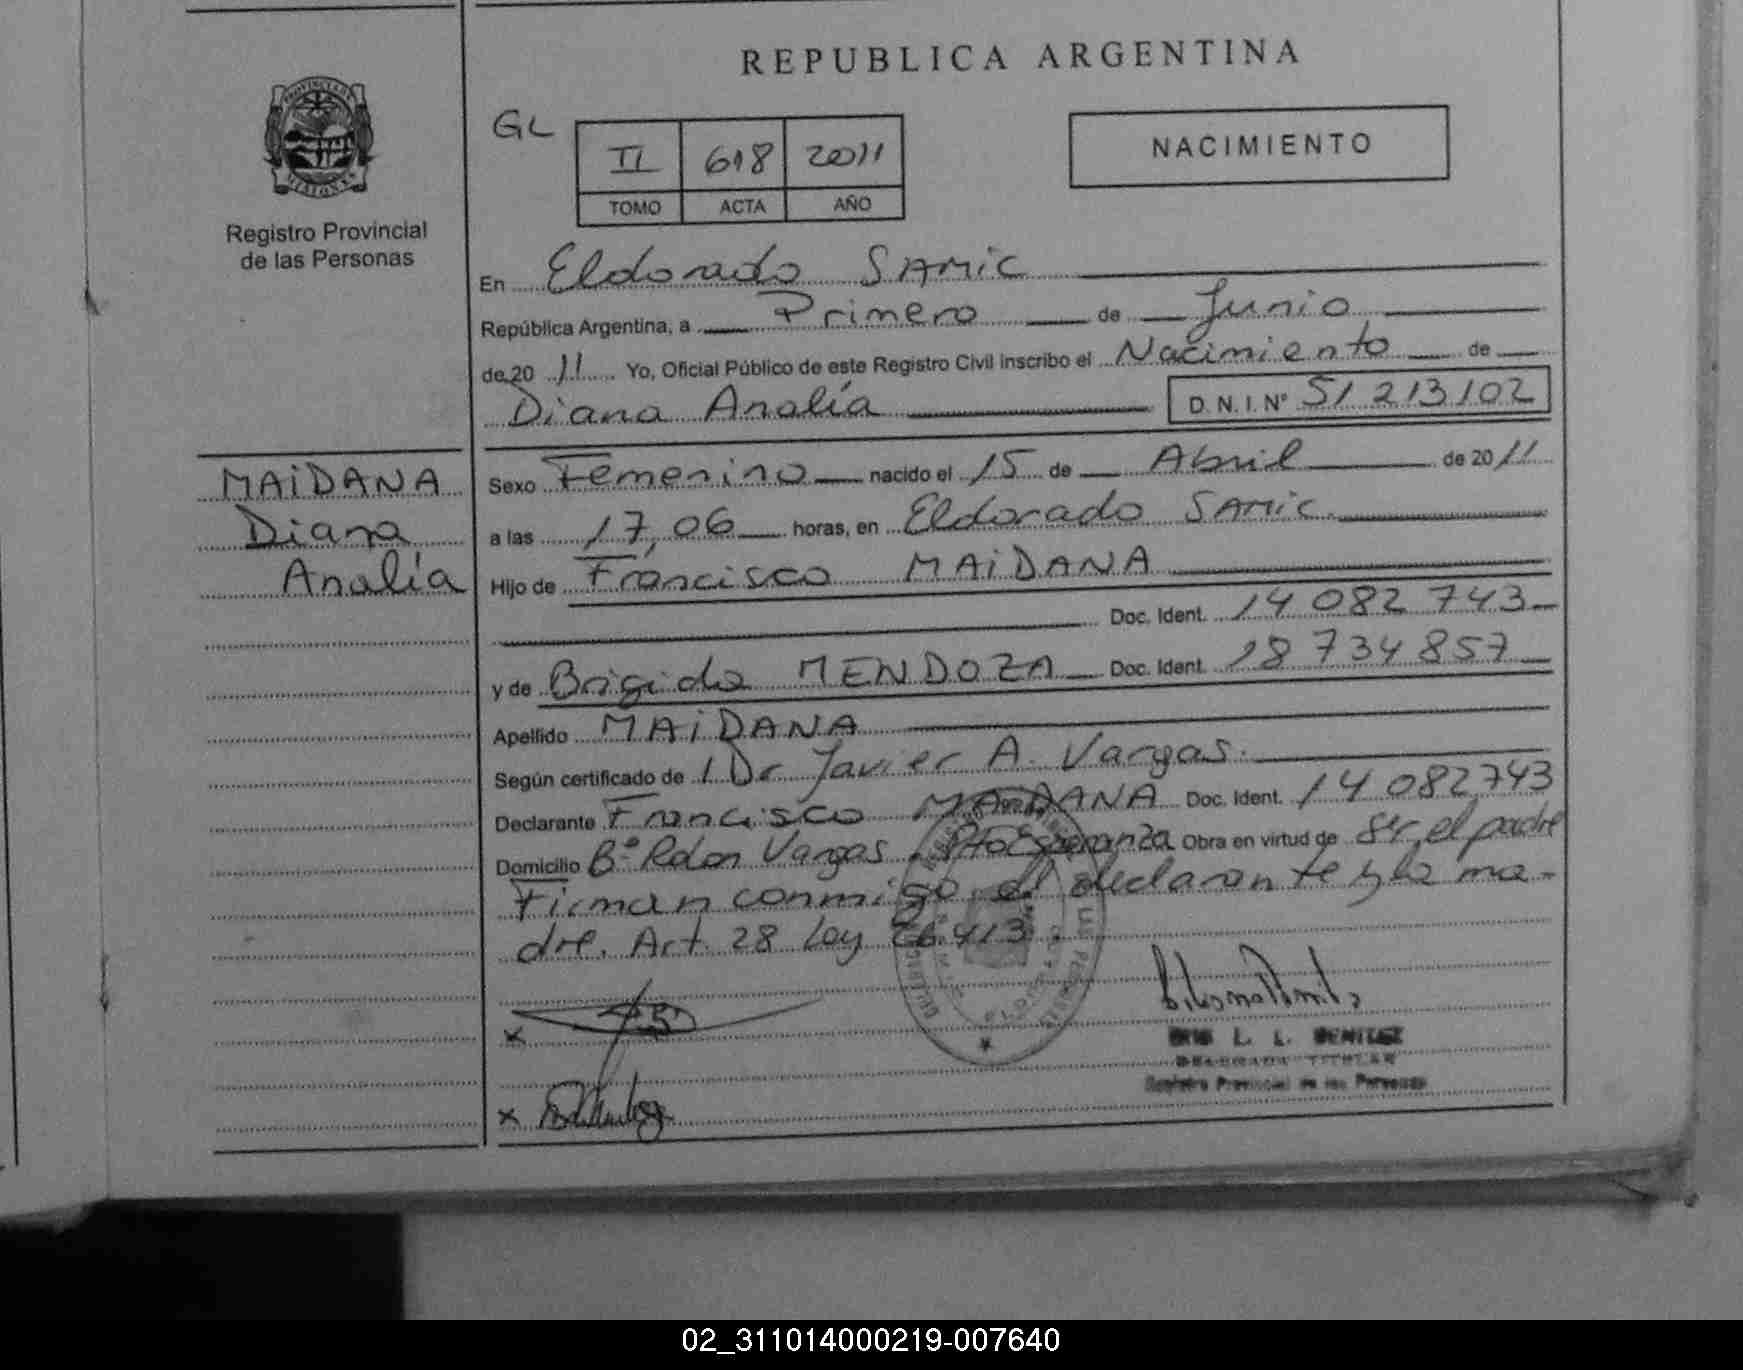 REPUBLICA ARGENTINA
PROVINCIA DE
MISIONES
Registro Provincial
de las Personas
GL
II 618 2011
TOMO ACTA AÑO
NACIMIENTO
En Eldorado SAMIC
República Argentina, a Primero de Junio
de 20 11 Yo, Oficial Público de este Registro Civil inscribo el Nacimiento de
Diana Analía D. N. I. Nº 51 213 102
MAIDANA
Diana
Analía
Sexo Femenino nacido el 15 de Abril de 20 11
a las 17,06 horas, en Eldorado SAMIC.
Hijo de Francisco MAIDANA
Doc. Ident. 14 082 743
y de Brigida MENDOZA Doc. Ident. 18 734 857
Apellido MAIDANA
Según certificado de 1 Dr Javier A. Vargas.
Declarante Francisco MAIDANA Doc. Ident. 14 082 743
Domicilio Bº Rolon Vargas. Pto Esperanza Obra en virtud de Ser el padre
Firman conmigo el declarante y la ma-
dre. Art. 28 Ley 26.413
x
L. L. BENITEZ
DELEGADA TITULAR
Registro Provincial de las Personas
x
02_311014000219-007640